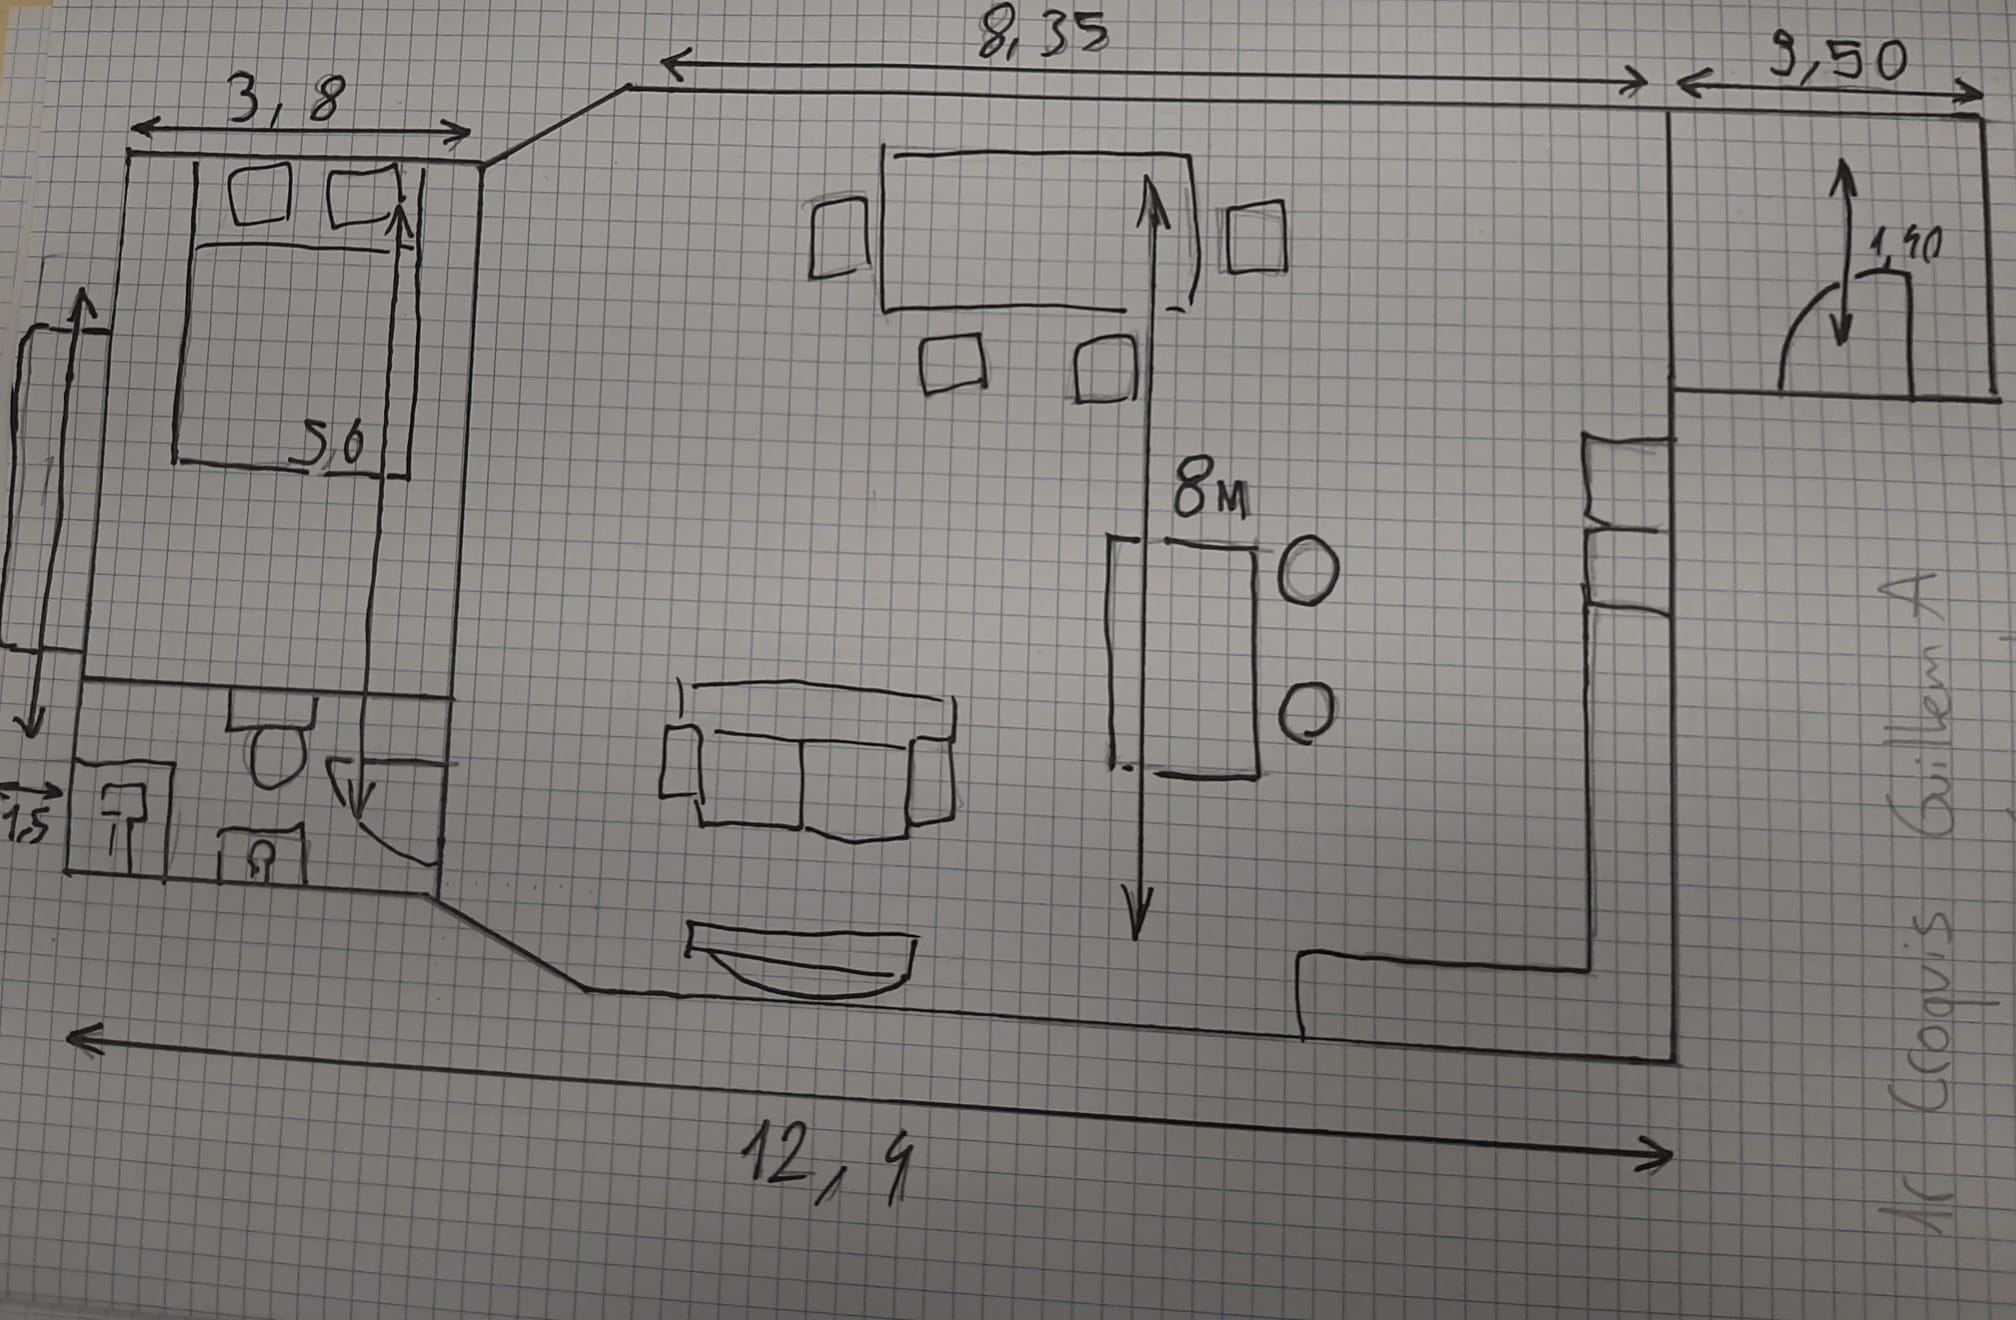 8,35
9,50
3, 8
1,40
5,6
8м
1,5
12, 4
1r Croquis Guillem A